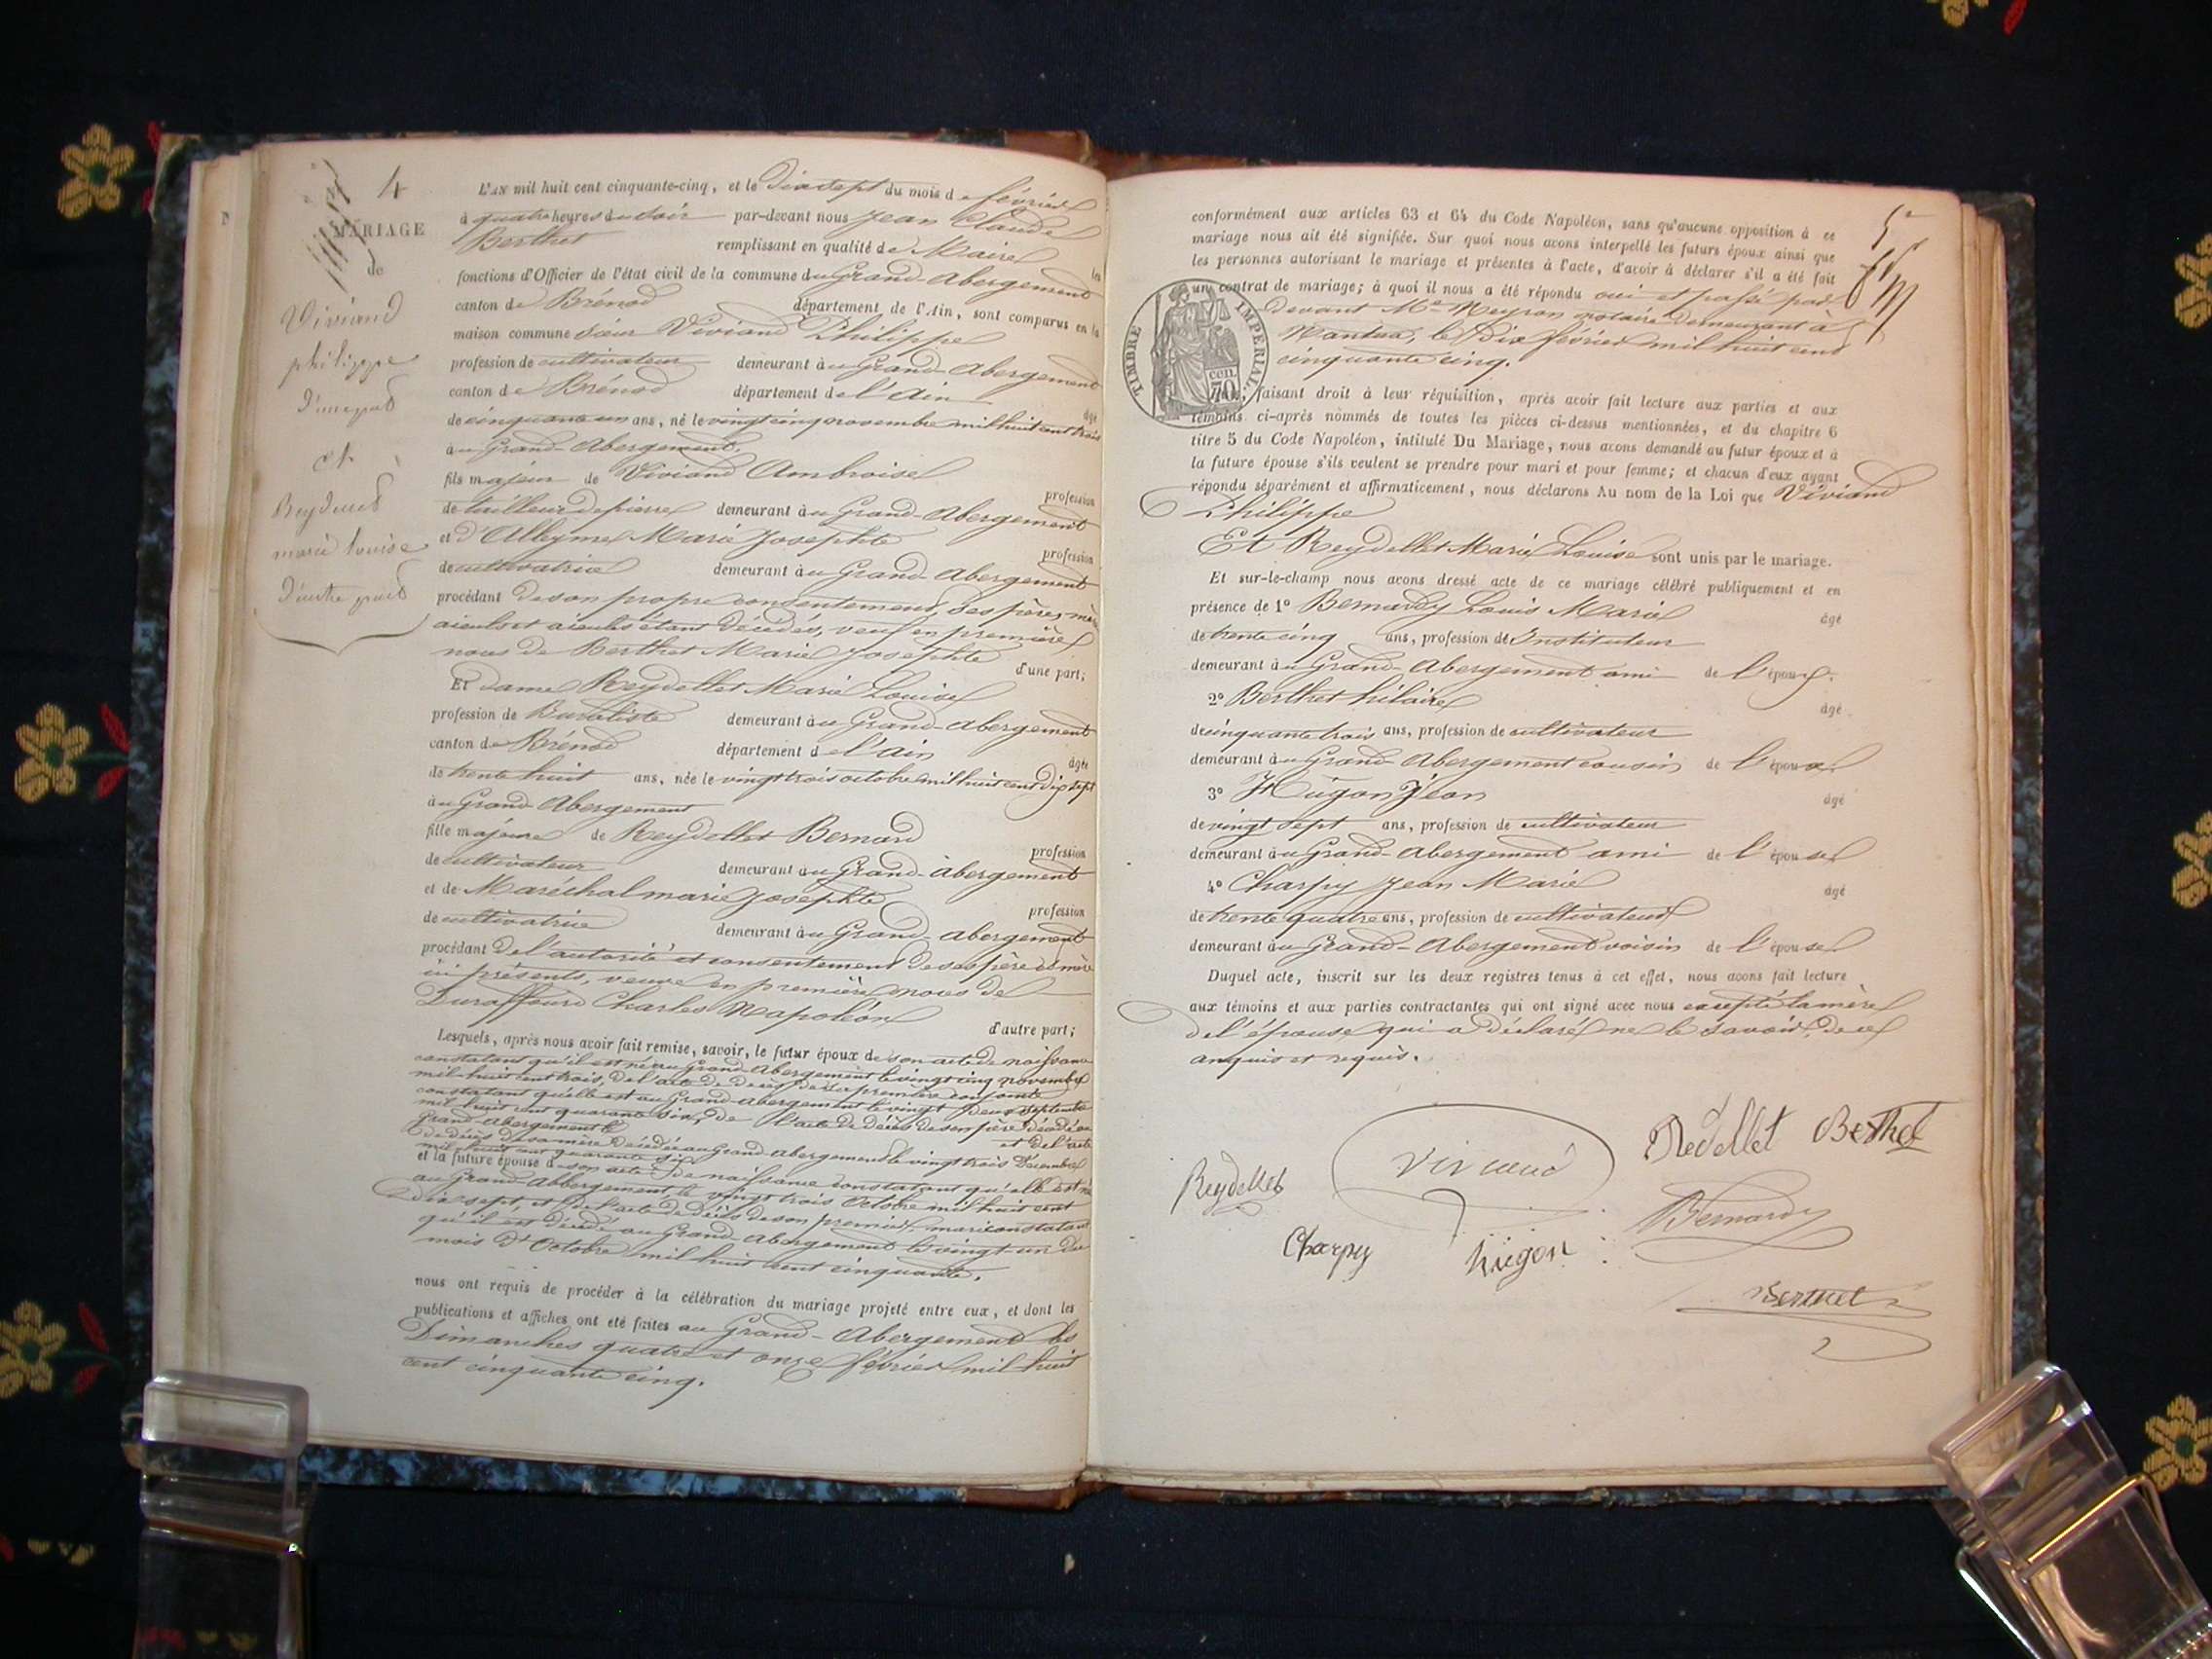 4
MARIAGE
de
Viviand
philippe
D'une part
et
Reydellet
marie louise
D'autre part
L'AN mil huit cent cinquante-cinq, et le Dix sept du mois de février
à quatre heures du soir par-devant nous Jean Claude
Berthet remplissant en qualité de Maire les
fonctions d'Officier de l'état civil de la commune du Grand-Abergement
canton de Brénod département de l'Ain, sont comparus en la
maison commune sieur Viviand Philippe
profession de cultivateur demeurant au Grand-Abergement
canton de Brénod département de l'Ain âgé
de cinquante un ans, né le vingt cinq novembre mil huit cent trois
au Grand-Abergement,
fils majeur de Viviand Ambroise profession
de tailleur de pierre demeurant au Grand-Abergement
et d'Alleyme Marie Josephte profession
de cultivatrice demeurant au Grand-Abergement
procédant de son propre consentement, ses père, mère
aieuls et aieules étant décédés, veuf en première
noces de Berthet Marie Josephte d'une part;
Et dame Reydellet Marie Louise
profession de Buraliste demeurant au Grand-Abergement
canton de Brénod département de l'Ain âgée
de trente huit ans, née le vingt trois octobre mil huit cent dix sept
au Grand-Abergement
fille majeure de Reydellet Bernard profession
de cultivateur demeurant au Grand-Abergement
et de Maréchal marie Josephte profession
de cultivatrice demeurant au Grand-Abergement
procédant de l'autorité et consentement de ses père et mère
ici présents, veuve en première noces de
Duraffourd Charles Napoléon d'autre part;
Lesquels, après nous avoir fait remise, savoir, le futur époux de son acte de naissance
constatant qu'il est né au Grand-Abergement le vingt cinq novembre
mil-huit cent trois, de l'acte de décès de sa première conjointe
constatant qu'elle est au Grand-Abergement le vingt deux septembre
mil huit cent quarante six, de l'acte de décès de son père décédé au
Grand-Abergement le et de l'acte
de décès de sa mère décédée au Grand-Abergement le vingt trois Décembre
mil huit cent quarante six
et la future épouse de son acte de naissance constatant qu'elle est née
au Grand-Abbergement, le vingt trois Octobre mil huit cent
dix sept, et de l'acte de décès de son premier mari constatant
qu'il est décédé au Grand-Abergement le vingt un du
mois d'Octobre mil huit cent cinquante.
nous ont requis de procéder à la célébration du mariage projeté entre eux, et dont les
publications et affiches ont été faites au Grand-Abergement les
Dimanches quatre et onze février mil huit
cent cinquante cinq.
5
conformément aux articles 63 et 64 du Code Napoléon, sans qu'aucune opposition à ce
mariage nous ait été signifiée. Sur quoi nous avons interpellé les futurs époux ainsi que
les personnes autorisant le mariage et présentes à l'acte, d'avoir à déclarer s'il a été fait
un contrat de mariage; à quoi il nous a été répondu oui et passé par
devant Me Meyron notaire demeurant à
Nantua, le Dix février mil huit cent
cinquante cinq.
TIMBRE IMPÉRIAL
70 cen.
faisant droit à leur réquisition, après avoir fait lecture aux parties et aux
témoins ci-après nommés de toutes les pièces ci-dessus mentionnées, et du chapitre 6
titre 5 du Code Napoléon, intitulé Du Mariage, nous avons demandé au futur époux et à
la future épouse s'ils veulent se prendre pour mari et pour femme; et chacun d'eux ayant
répondu séparément et affirmativement, nous déclarons Au nom de la Loi que Viviand
Philippe
Et Reydellet Marie Louise sont unis par le mariage.
Et sur-le-champ nous avons dressé acte de ce mariage célébré publiquement et en
présence de 1º Bernardy Louis Marie âgé
de trente cinq ans, profession de Instituteur
demeurant au Grand-Abergement ami de l'époux.
2º Berthet hilaire âgé
de cinquante trois ans, profession de cultivateur
demeurant au Grand-Abergement cousin de l'époux
3º Hugon Jean âgé
de vingt sept ans, profession de cultivateur
demeurant au Grand-Abergement ami de l'épouse
4º Charpy Jean Marie âgé
de trente quatre ans, profession de cultivateur
demeurant au Grand-Abergement voisin de l'épouse
Duquel acte, inscrit sur les deux registres tenus à cet effet, nous avons fait lecture
aux témoins et aux parties contractantes qui ont signé avec nous excepté la mère
de l'épouse qui a déclaré ne le savoir, de ce
enquis et requis.
Redellet Berthet
Reydellet Viviand
Bernardy
Charpy hugon
Berthet